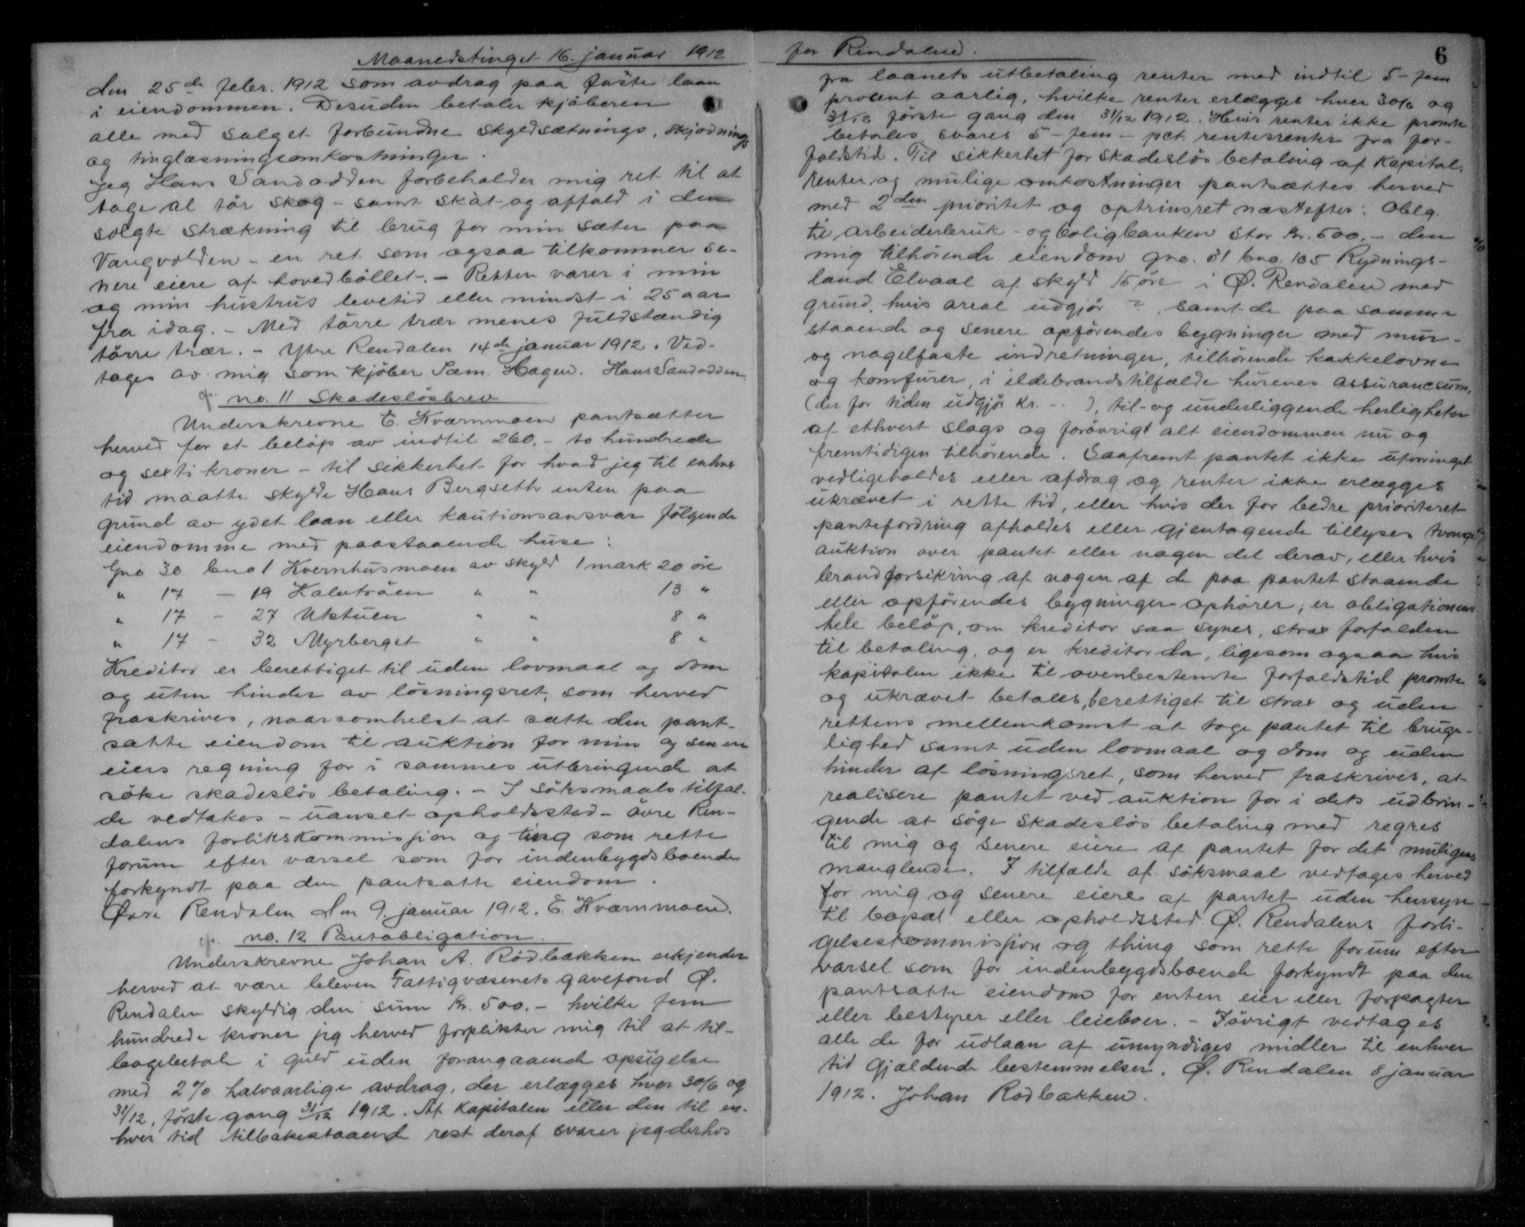 Maanedstinget 16. januar 1912
den 25de febr. 1912 som avdrag paa faste laan
i eiendommen. Desuden betaler kjøberen
alle med salget forbundne skyldsætnings, skjødnings
og tinglæsningsomkostninger.
Jeg Hans Sandodden forbeholder mig ret til at
tage al tør skog – samt skat og affald i den
solgte strækning til brug for min sæter paa
Vangvolden – en ret som ogsaa tilkommer se-
nere eiere af hovedbøllet. – Retten varer i min
og min hustrus levetid eller mindst i 25 aar
fra idag. – Med tørre trær menes fuldstændig
tørre trær. – Ytre Rendalen 14de januar 1912. Ved-
tages av mig som kjøber Sam. Hagen. Hans Sandodden
no. 11 Skadesløsbrev
Underskrevne E. Kværnmoen pantsætter
herved for et beløp av indtil 260,- to hundrede
og sexti kroner – til sikkerhet for hvad jeg til enhver
tid maatte skylde Hans Bergseth enten paa
grund av ydet laan eller kautionsansvar følgende
eiendomme med paastaaende huse:
Gno 30 bno 1 Kvernhusmoen av skyld 1 mark 20 øre
" 17 – 19 Kalvtrøen " " 13 "
" 17 – 27 Utstuen " " 8 "
" 17 – 32 Myrberget " " 8 "
Kreditor er berettiget til uden lovmaal og dom
og uten hinder av løsningsret, som herved
fraskrives, naarsomhelst at sætte den pant-
satte eiendom til auktion for min og senere
eiers regning for i sammes utbringende at
søke skadesløs betaling. – I søksmaals tilfæl-
de vedtakes – uanset opholdssted – øvre Ren-
dalens forlikskommission og ting som rette
forum efter varsel som for indenbygdsboende
forkyndt paa den pantsatte eiendom.
Øvre Rendalen den 9. januar 1912. E. Kværnmoen.
no. 12 Pantobligation
Underskrevne Johan A. Rødbakken erkjender
herved at være bleven Fattigvæsenets gavefond Ø.
Rendalen skyldig den sum kr. 500.- hvilke fem
hundrede kroner jeg herved forplikter mig til at til-
bagebetale i guld uden forangaaende opsigelse
med 2 % halvaarlige avdrag, der erlægges hver 30/6 og
31/12, første gang 31/12 1912. Af kapitalen eller den til en-
hver tid tilbakestaaende rest deraf svarer jeg derhos
for Rendalen.
6
fra laanets utbetaling renter med indtil 5 – fem
procent aarlig, hvilke renter erlægges hver 30/6 og
31/12 første gang den 31/12 1912. Hvis renter ikke promte
betales, svares 5 – fem – pct rentesrenter fra for-
faldstid. Til sikkerhet for skadesløs betaling af kapital,
renter og mulige omkostninger pantsættes herved
med 2den prioritet og optrinsret næstefter: Oblg.
til arbeiderbruk- og boligbanken stor kr. 500.- den
mig tilhørende eiendom gno. 31 bno. 105 Rydnings-
land Elvaal af skyld 15 øre i Ø. Rendalen med
grund, hvis areal udgjør ?, samt de paa samme
staaende og senere opførendes bygninger med mur-
og nagelfaste indretninger, tilhørende kakkelovne
og komfurer, i ildebrandstilfælde husenes assurancesum,
(der for tiden udgjør kr. - - ), til- og underliggende herligheter
af ethvert slags og forøvrigt alt eiendommen nu og
fremtidigen tilhørende. Saafremt pantet ikke uforringet
vedligeholdes eller afdrag og renter ikke erlægges
ukrævet i rette tid, eller hvis der for bedre prioriteret
pantefordring afholdes eller gjentagende tillyses tvangs
auktion over pantet eller nogen del derav, eller hvis
brandforsikring af nogen af de paa pantet staaende
eller opførendes bygninger ophører, er obligationens
hele beløp, om kreditor saa synes, strax forfalden
til betaling, og er kreditor da, ligesom ogsaa hvis
kapitalen ikke til ovenbestemte forfaldstid promte
og ukrævet betales, berettiget til strax og uden
rettens mellemkomst at tage pantet til bruge-
lighed samt uden lovmaal og dom og uden
hinder af løsningsret, som herved fraskrives, at
realisere pantet ved auktion for i dets udbrin-
gende at søge skadesløs betaling med regres
til mig og senere eiere af pantet for det muligens
manglende. I tilfælde af søksmaal vedtages herved
for mig og senere eiere af pantet uden hensyn
til bopæl eller opholdssted Ø. Rendalens forli-
gelseskommission og thing som rette forum efter
varsel som for indenbygdsboende forkyndt paa den
pantsatte eiendom for enten eier eller forpagter
eller bestyrer eller leieboer. – Iøvrigt vedtages
alle de for udlaan af umyndiges midler til enhver
tid gjældende bestemmelser. Ø. Rendalen 8 januar
1912. Johan Rødbakken.